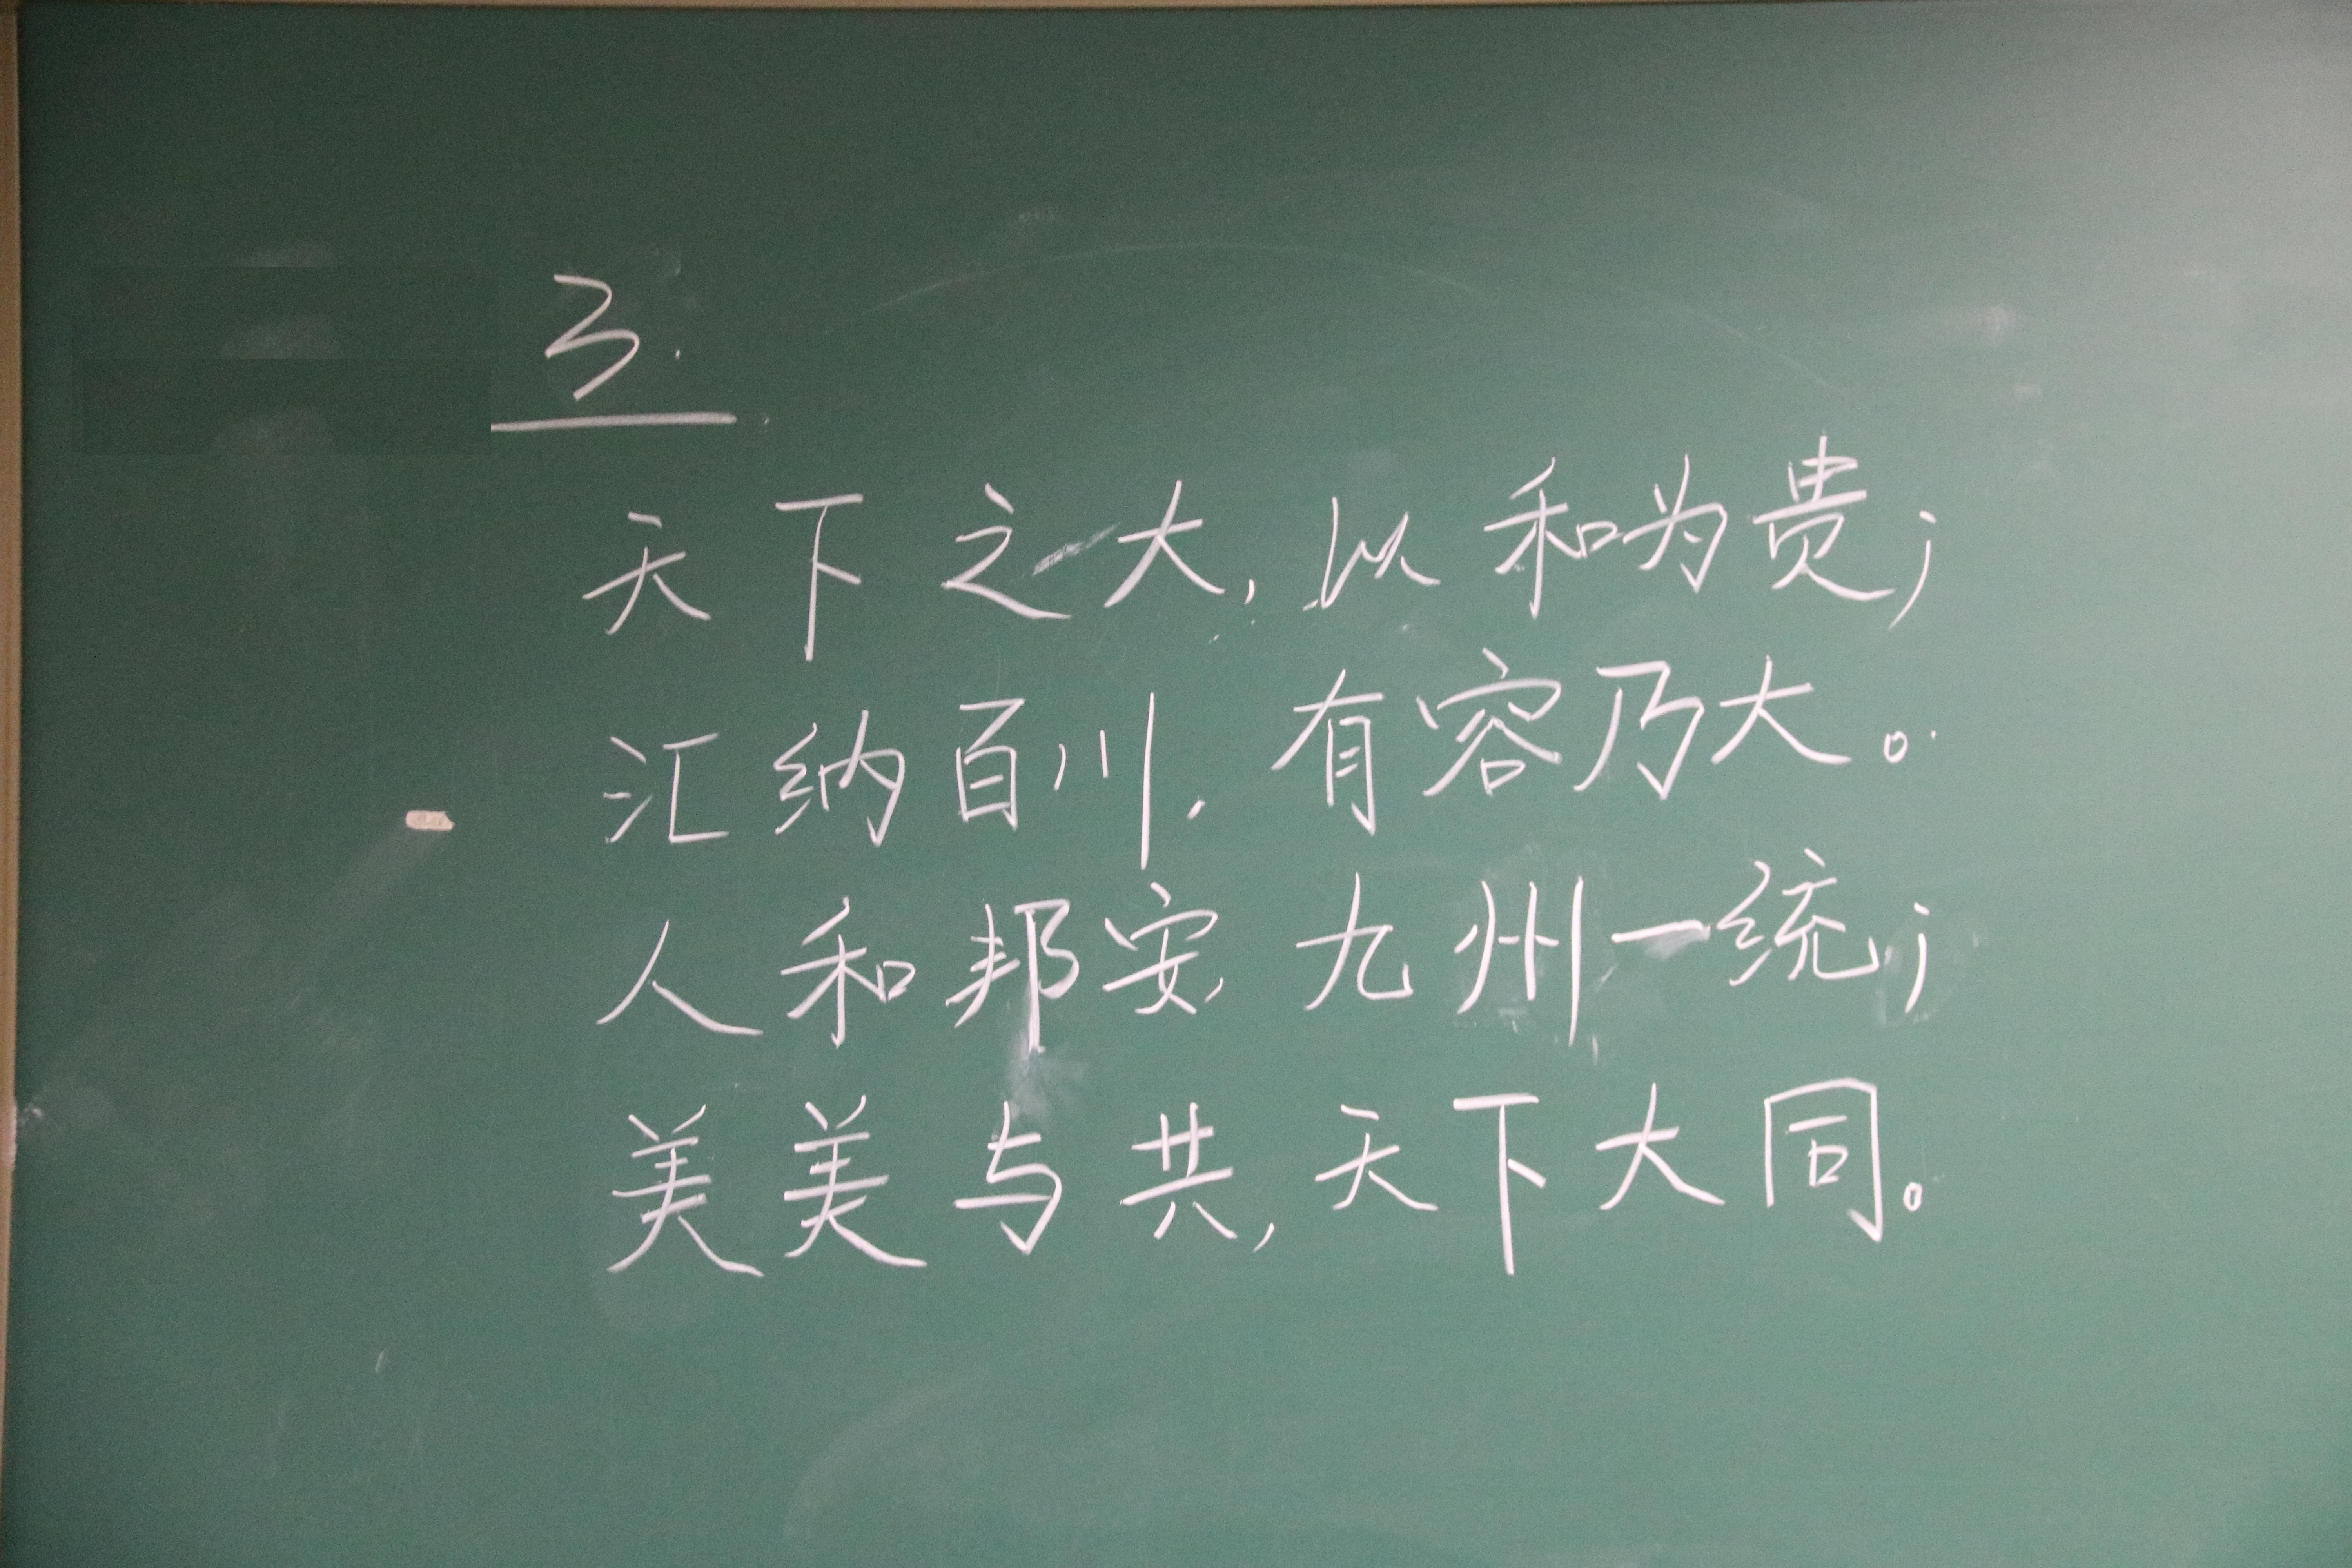 3.
天下之大，以和为贵；
汇纳百川，有容乃大。
人和邦安，九州一统；
美美与共，天下大同。